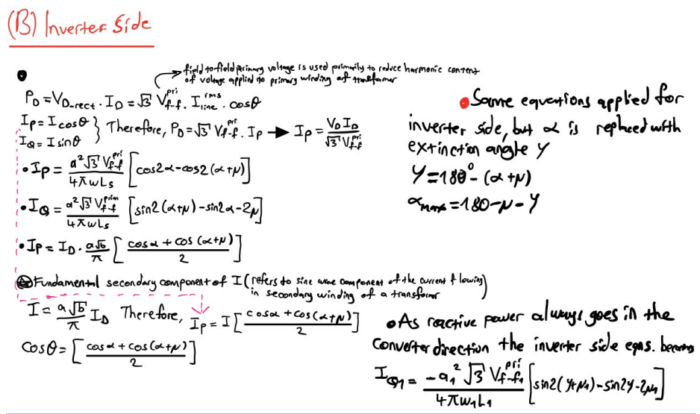 (B) Inverter Side
field-to-field primary voltage is used primarily to reduce harmonic content
of voltage applied to primary winding of transformer
P_D = V_D_rect . I_D = √3 V_f-f^pri . I_line^rms . cosθ
I_P = I cosθ
I_Q = I sinθ } Therefore, P_D = √3 V_f-f^pri . I_P → I_P = V_D I_D / √3 V_f-f^pri
• I_P = a²√3 V_f-f^pri / 4πωL_s [cos2α - cos2(α+μ)]
• I_Q = a²√3 V_f-f^prim / 4πωL_s [sin2(α+μ) - sin2α - 2μ]
• I_P = I_D . a√6 / π [cosα + cos(α+μ) / 2]
Fundamental secondary component of I (refers to sine wave component of the current flowing)
in secondary winding of a transformer
I = a√6 / π I_D Therefore, I_P = I [cosα + cos(α+μ) / 2]
cosθ = [cosα + cos(α+μ) / 2]
• Same equations applied for
inverter side, but α is replaced with
extinction angle γ
γ = 180° - (α+μ)
α_max = 180 - μ - γ
• As reactive power always goes in the
converter direction the inverter side eqns. become
I_Q1 = -a₁²√3 V_f-f1^pri / 4πω₁L₁ [sin2(γ+μ₁) - sin2γ - 2μ₁]